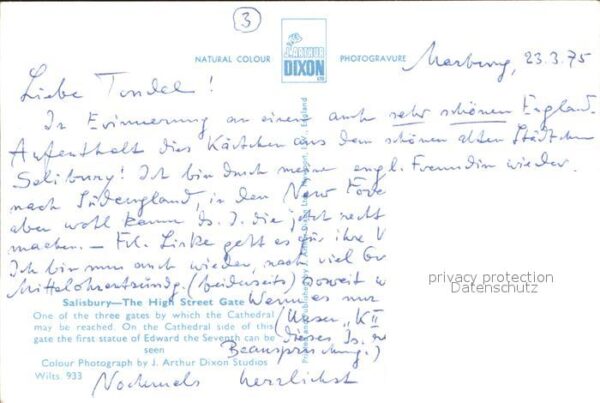 3
NATURAL COLOUR
J. ARTHUR
DIXON
PHOTOGRAVURE
Marburg, 23.3.75
Liebe Tondel!
In Erinnerung an einen auch sehr schönen England-
Aufenthalt dies Kärtchen aus dem schönen alten Städtchen
Salisbury! Ich bin durch meine engl. Freundin wieder
nach Südengland, in den New Fore
aber wohl kaum ds. J. die jetzt recht
machen. – Frl. Linke geht es für ihre V
Ich bin nun auch wieder, nach viel Gr
Mittelohrentzündg. (beiderseits) soweit w
Salisbury—The High Street Gate
Wenn es nur
One of the three gates by which the Cathedral
may be reached. On the Cathedral side of this
gate the first statue of Edward the Seventh can be
seen
(Unser „K II
dieses Js.
Beanspruchung.)
Colour Photograph by J. Arthur Dixon Studios
Wilts. 933
Nochmals herzlichst
privacy protection
Datenschutz